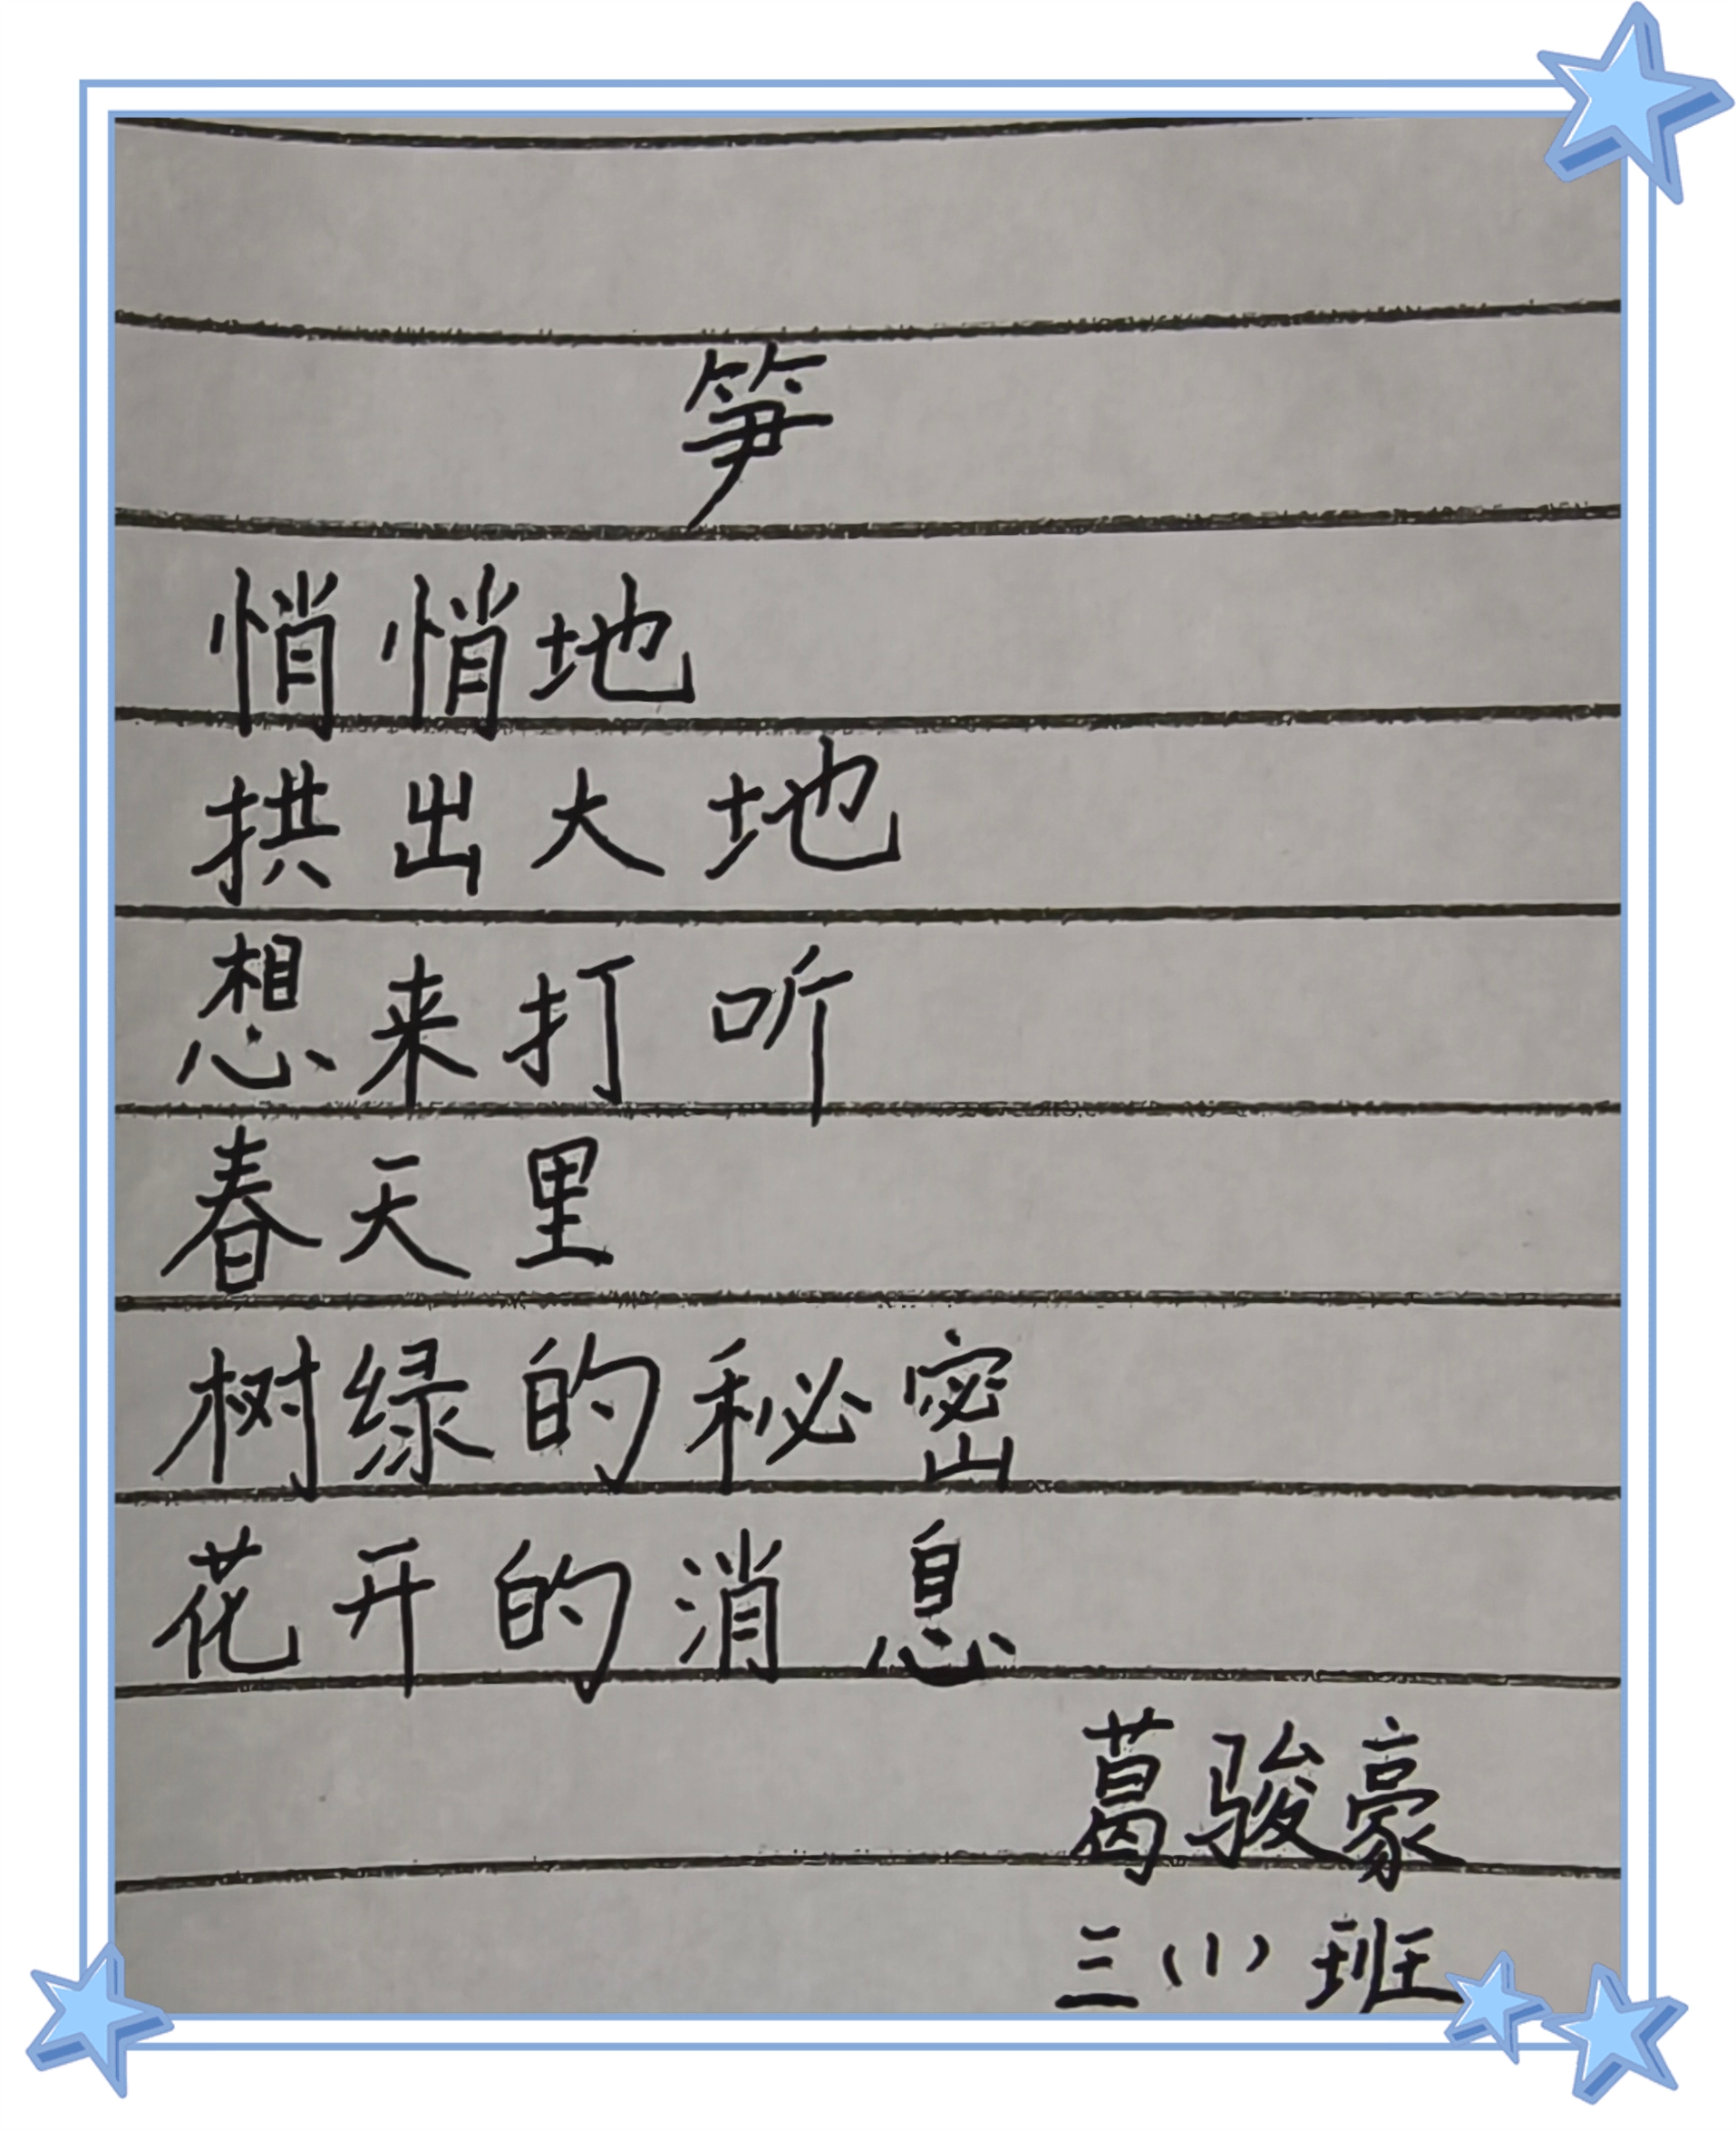 笋
悄悄地
拱出大地
想来打听
春天里
树绿的秘密
花开的消息
葛骏豪
三(1)班